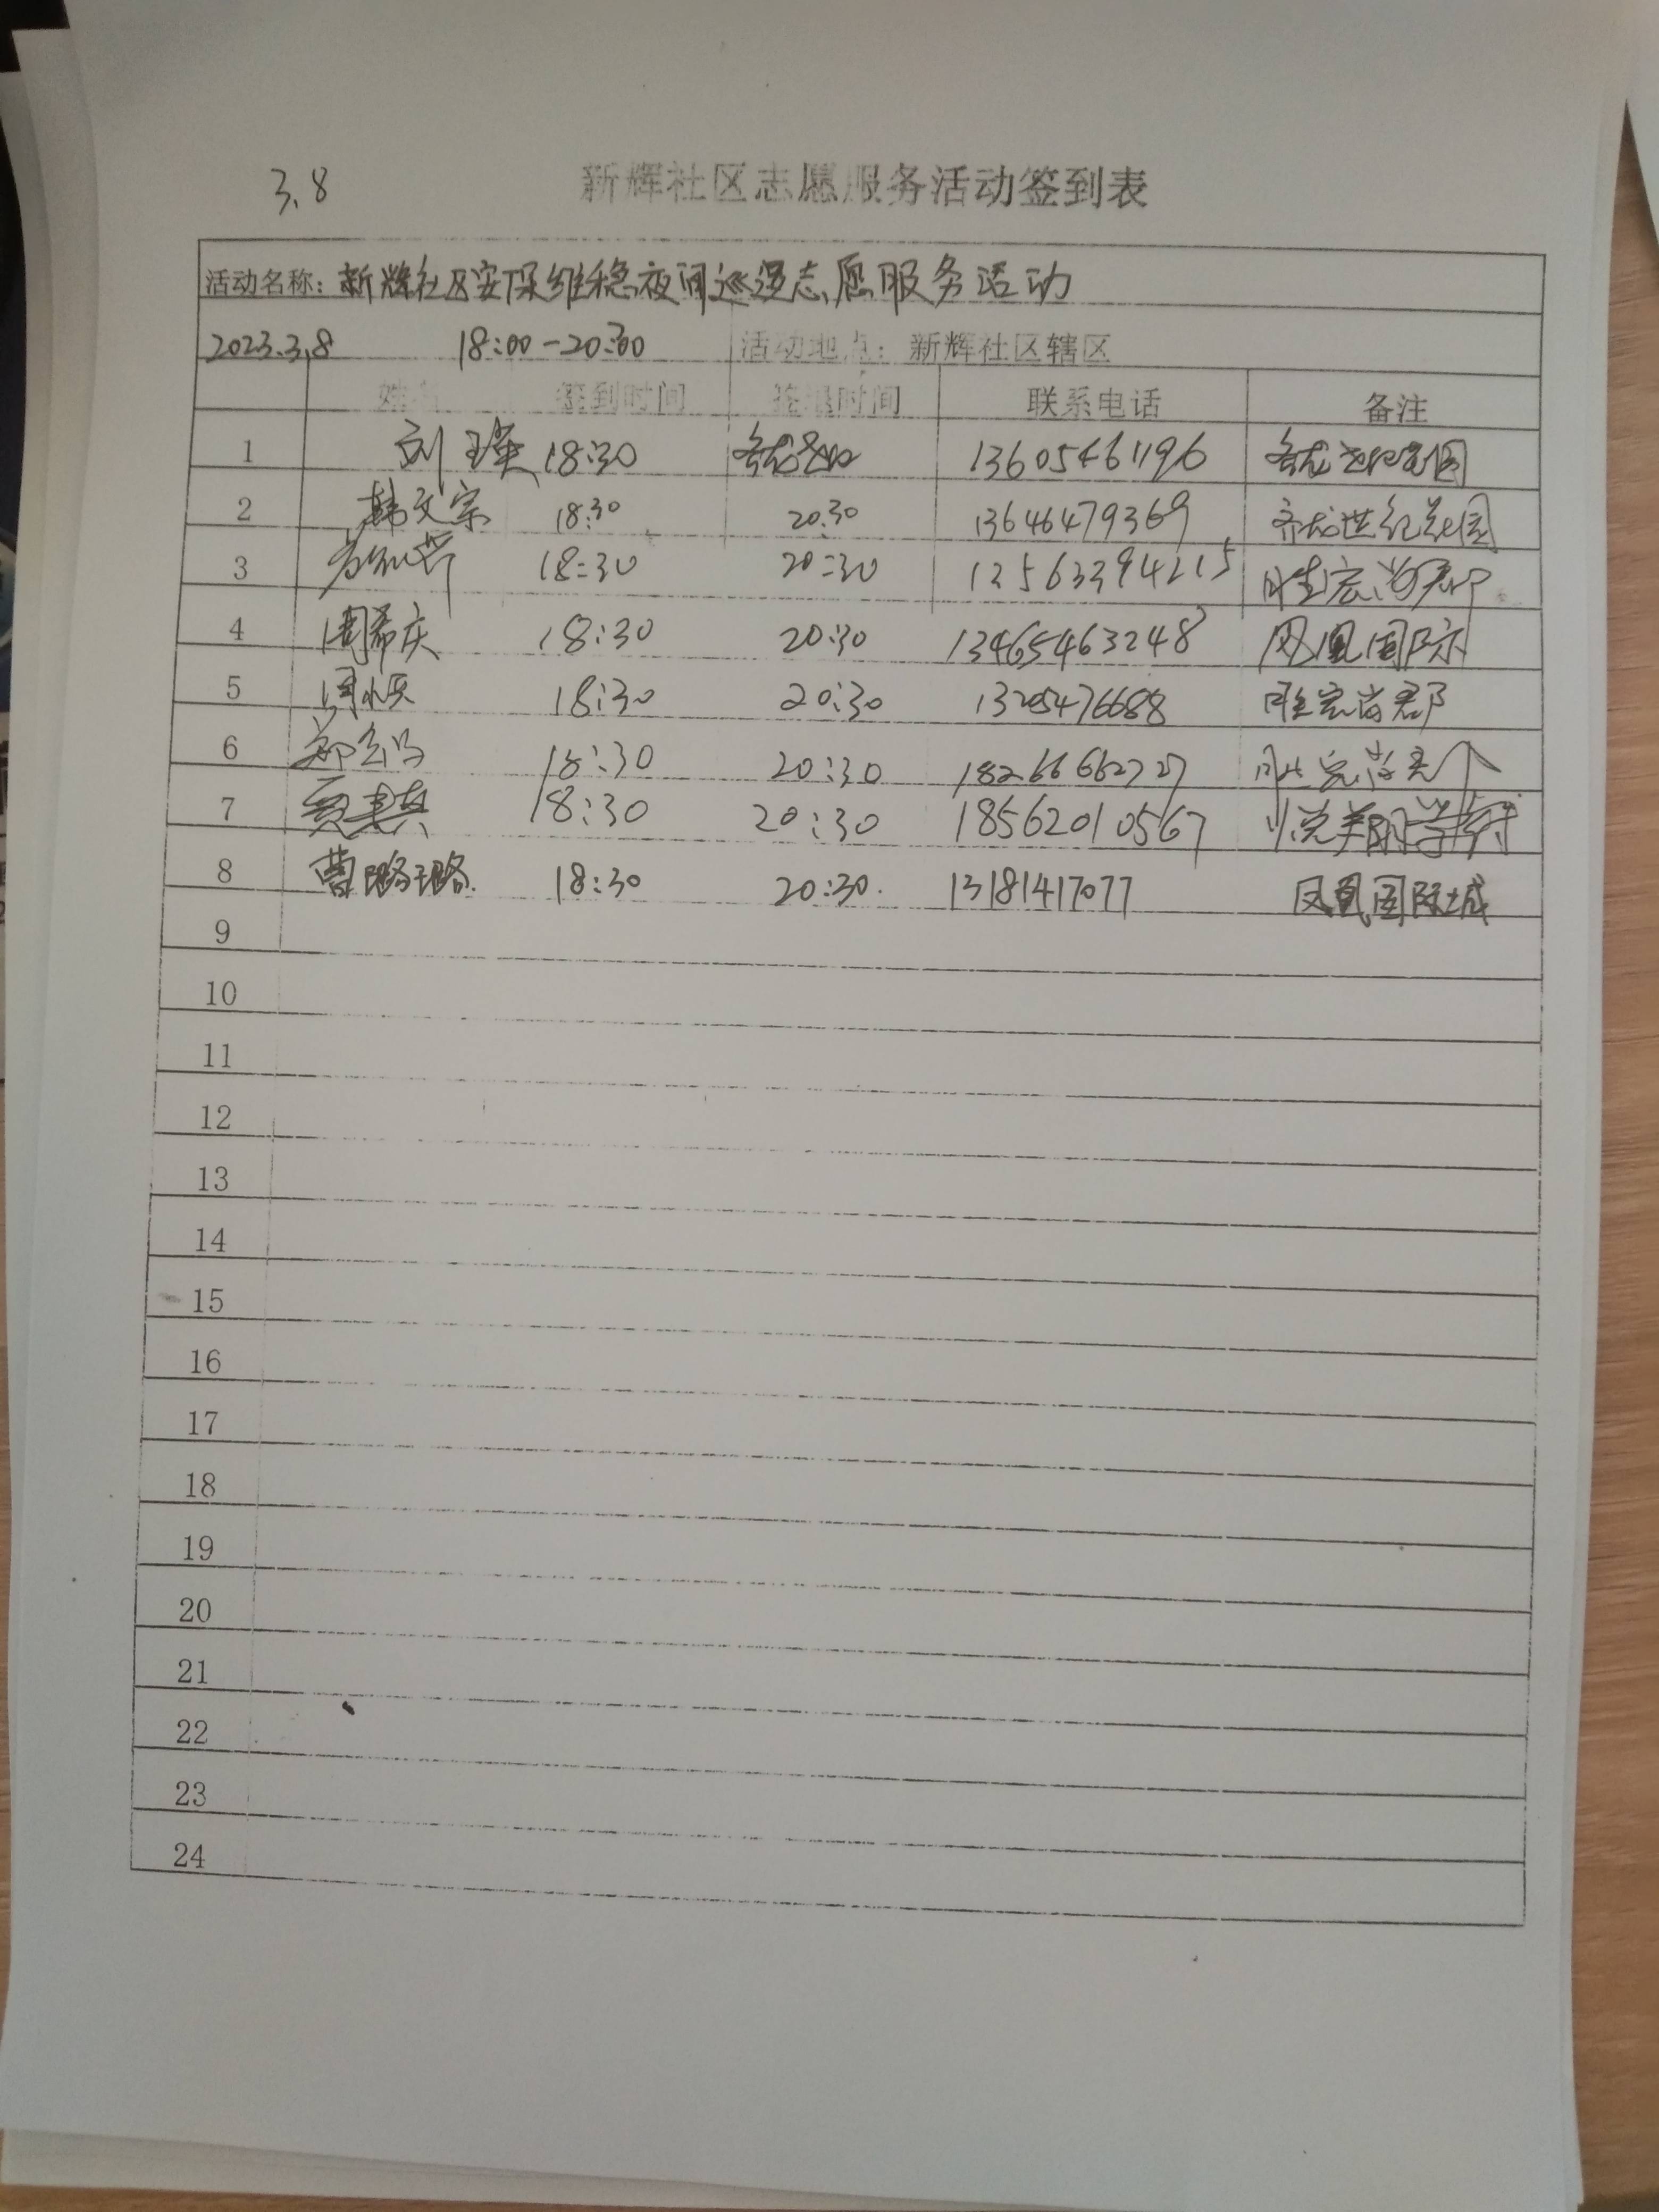 3.8
新辉社区志愿服务活动签到表
活动名称：新辉社区安保维稳夜间巡逻志愿服务活动
2023.3.8 18:00-20:30 活动地点：新辉社区辖区
姓名 签到时间 签退时间 联系电话 备注
1 刘 18:30 13605461196
2 韩文宗 18:30 20:30 13646479369 齐龙世纪花园
3 18:30 20:30
4 周希庆 18:30 20:30 13465463248 凤凰国际
5 18:30 20:30 13205476688
6 18:30 20:30 18266662727
7 18:30 20:30 18562010567
8 曹璐璐 18:30 20:30 13181417077 凤凰国际城
9
10
11
12
13
14
15
16
17
18
19
20
21
22
23
24